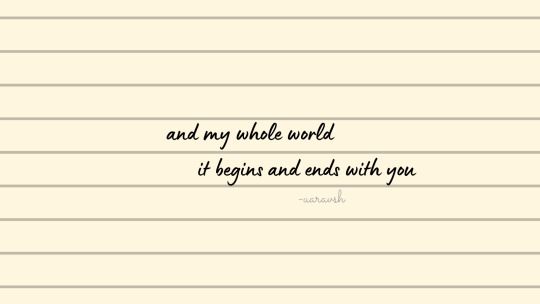 and my whole world
it begins and ends with you
-uaravsh